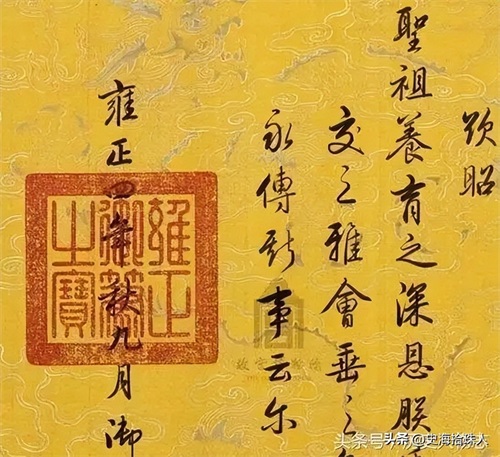 昭
聖祖養育之深恩朕
交之雅會垂之
永傳斯事云尔
雍正四年秋九月御
雍正御筆之寶
头条 @史海拾珠人